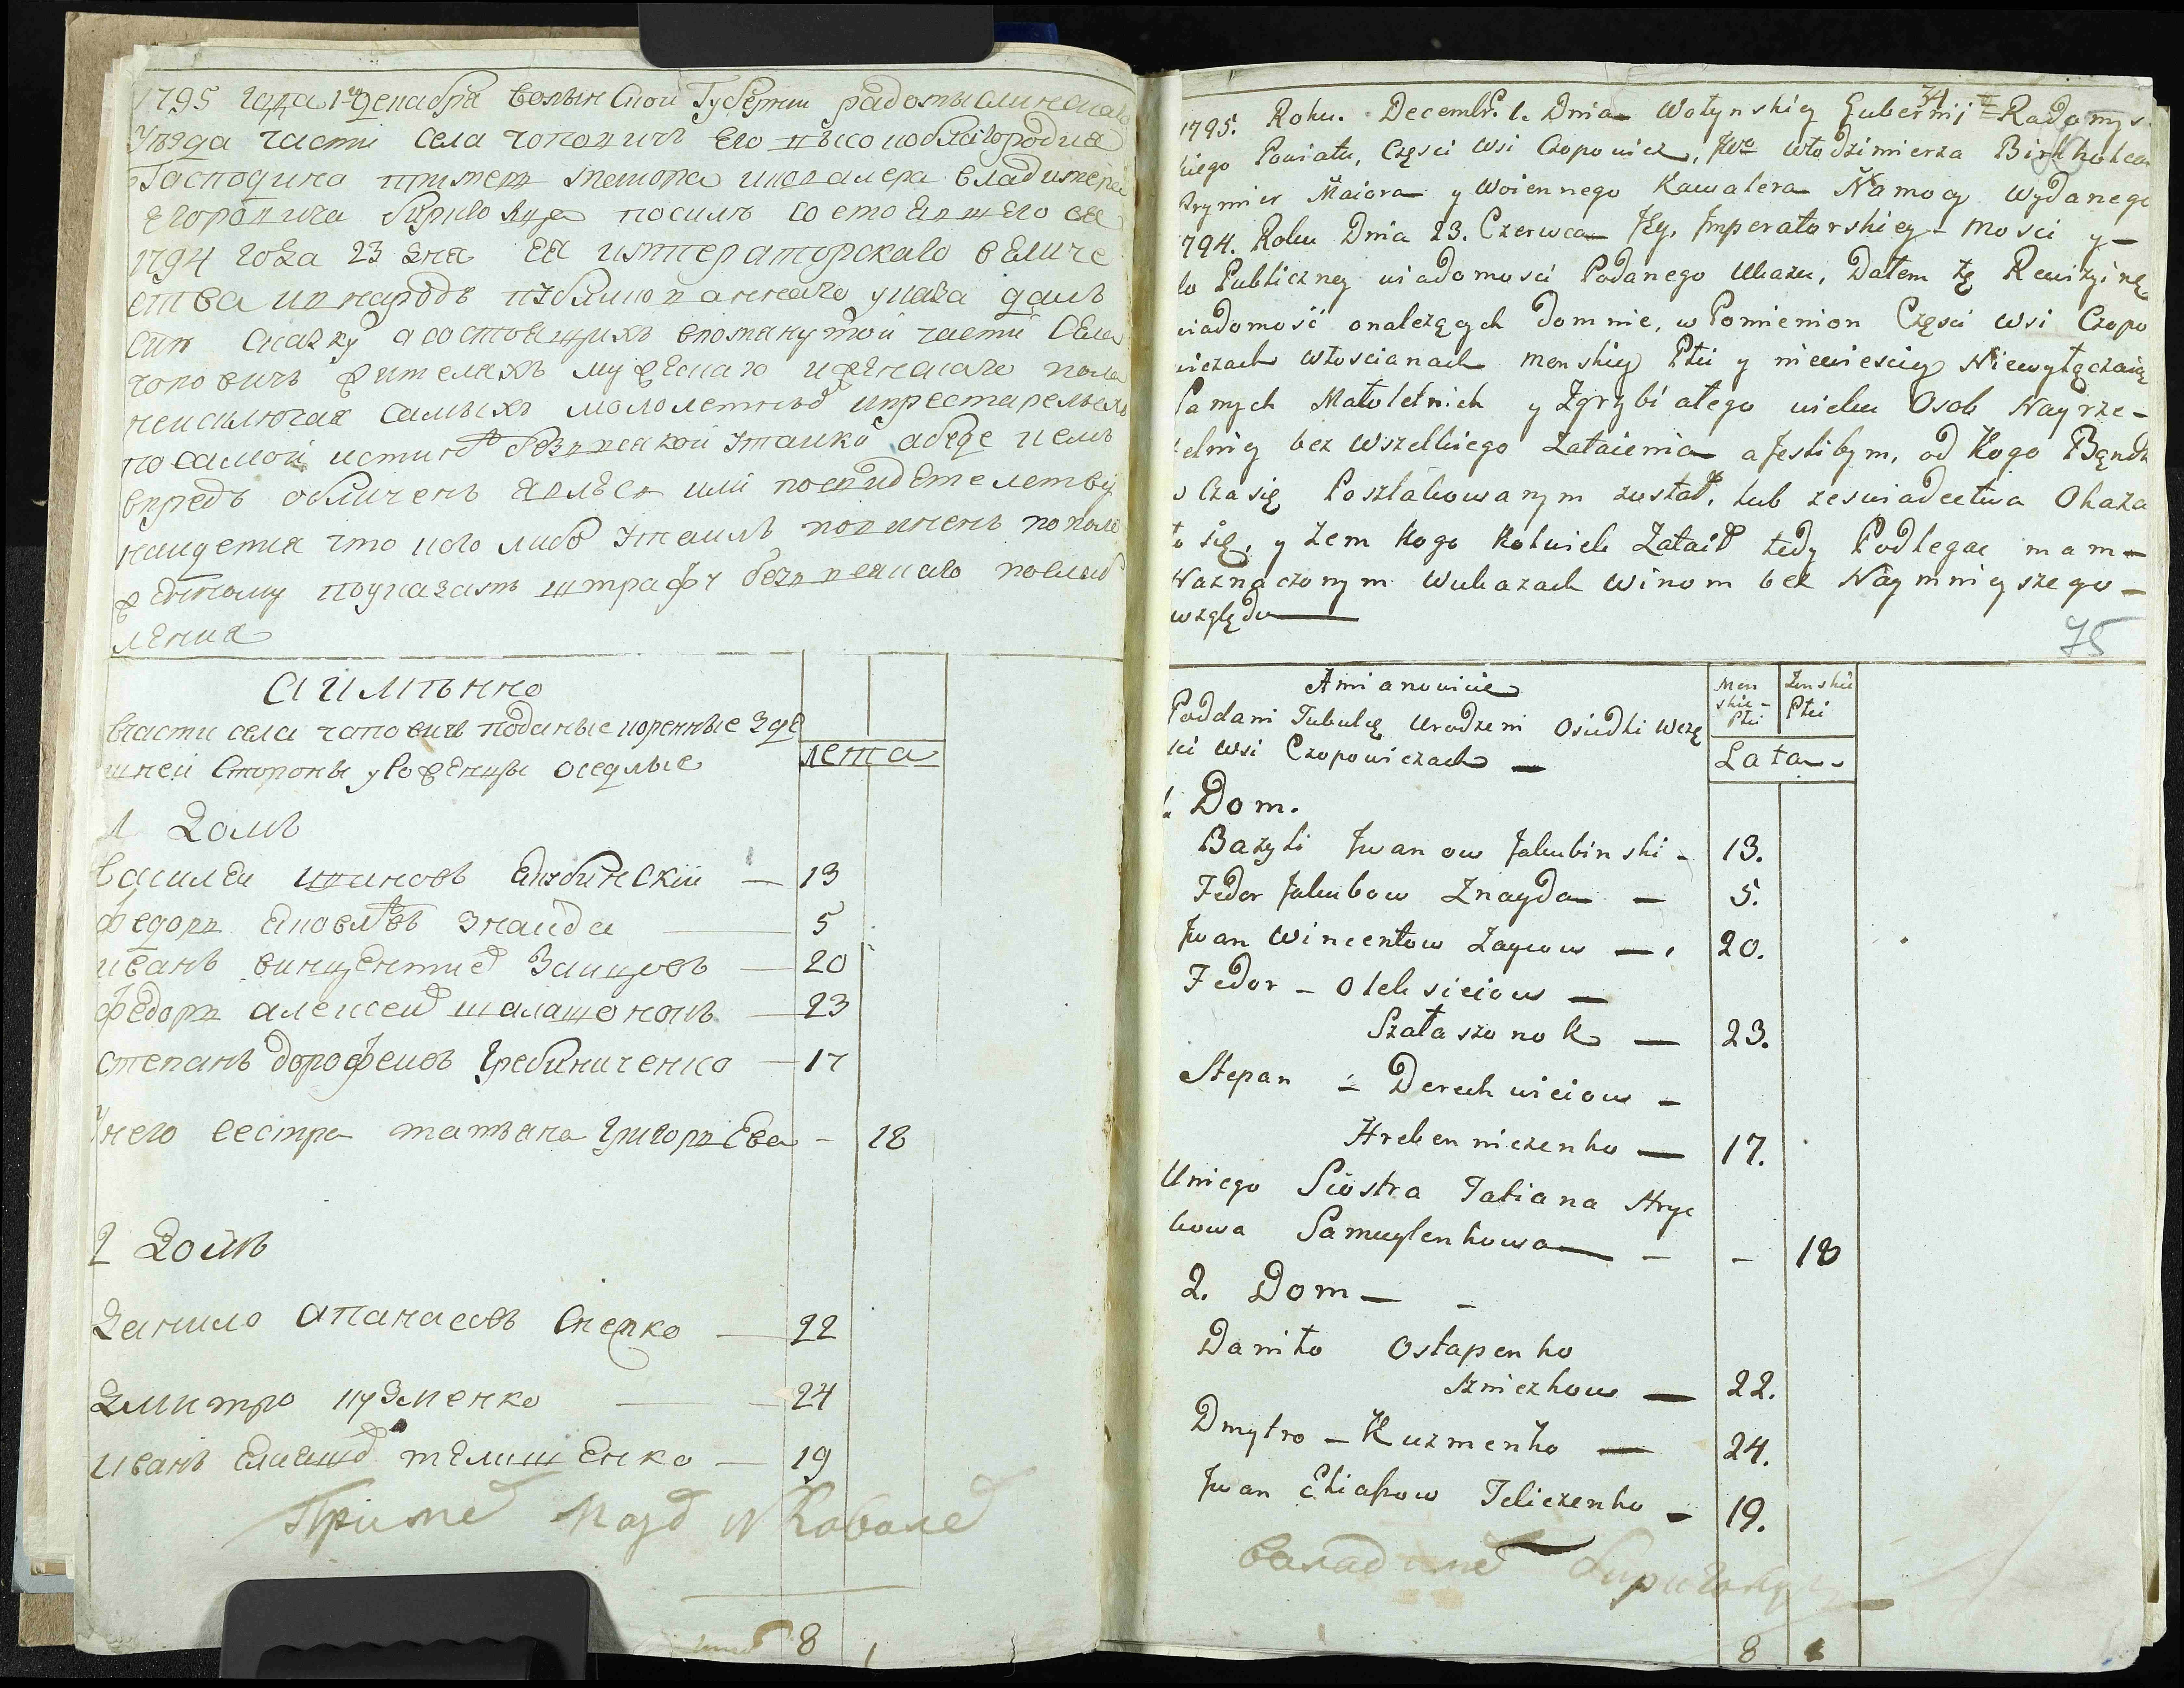 1795 года 1го декабря волынской Губернии радомысльскаго
уезда части села чопович его высокоблагородия
Господина пример маиора и кавалера владимера
егоровича
1794 года 23 дня ея императорскаго величе
ства и в народъ публикованнаго указа далъ
сию скаску о состоящихъ впомянутой части села
чоповичь жителяхъ мужескаго и женскаго пола
неисключая самыхъ малолетныхъ и престарелыхъ
по самой истине без всякой утайки а буде кемъ
впредь обличенъ явлюся или по свидетелству
найдется что кого либо утаилъ повиненъ пополо
женному по указамъ штрафу безвсякаго послаб
ления
а имянно
вчасти села чопович поданые коренные зде
шней стороны урожденцы оседлые
лета
1 Домъ
василеи ивановъ якубинский — 13
федоръ яковлевъ знаида — 5
иванъ винцентиев Заицовъ — 20
федоръ алексеив шалашонокъ — 23
степанъ дорофеивъ Гребиниченко — 17
унего сестра татяна Григорьева — 18
2 Домъ
Данило апанасовъ — 22
Дмитро кузменко — 24
иванъ телишенко — 19
8 1
34
1795. Roku. Decembr. 1. Dnia Wołynskiey Gubernij Radomys
kiego Powiatu, Częsci Wsi Czopowicz, Jwo Włodzimierza
Prymier Maiora y Woiennego Kawalera Namocy Wydanego
1794. Roku Dnia 23. Czerwca Jey Imperatorskiey Mosci y —
do Publiczney wiadomosci Podanego Ukazu, Dałem tę Rewizyiną
wiadomość onależących Domnie, w Pomienion Częsci Wsi Czopo
wiczach włoscianach menskiey Płci y niewiesciey Niewyłączaią
Samych Małoletnich y Zgrzybiałego wieku Osob Nayrze-
telniey bez Wszelkiego Zataienia a Jeslibym, od Kogo Bęndz
w Czasię Poszlakowanym zustał, lub zeswiadectwa Okaza
ło się, y żem Kogo Kolwiek Zataił tedy Podlegac mam —
Naznaczonym Wukazach Winom bez Naymnieyszego —
względu
75
Amianowicie
Poddani Tubulcę Urodzeni Osiedli Wczę
sci Wsi Czopowiczach —
Men
skie-
Płci
Zenskie
Płci
Lata
1. Dom.
Bazyli Jwanow Jakubinski - 13.
Fedor Jakubow Znayda — 5.
Jwan Wincentow Zaycow — 20.
Fedor - Oleksieiow —
Szałaszonok — 23.
Stepan - Derechwieiow -
Hrebenniczenko — 17.
Uniego Siostra Tatiana Hryc
kowa Samuylenkowa — - - 18
2. Dom —
Daniło Ostapenko
Szniezkow — 22.
Dmytro - Kuzmenko — 24.
Jwan Eliaszow Teliczenko - 19.
8